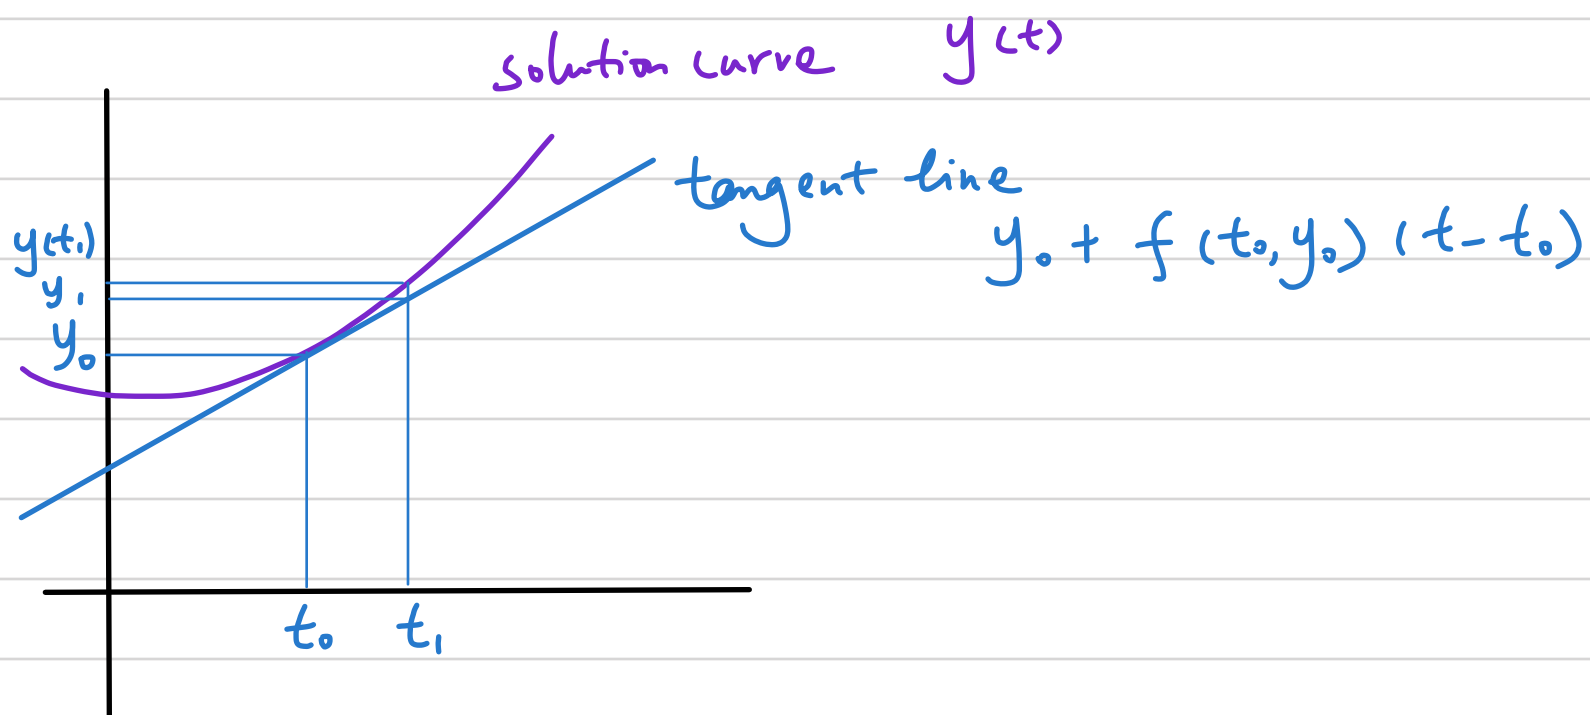 solution curve y(t)
tangent line
y₀ + f(t₀, y₀)(t - t₀)
y(t₁)
y₁
y₀
t₀ t₁